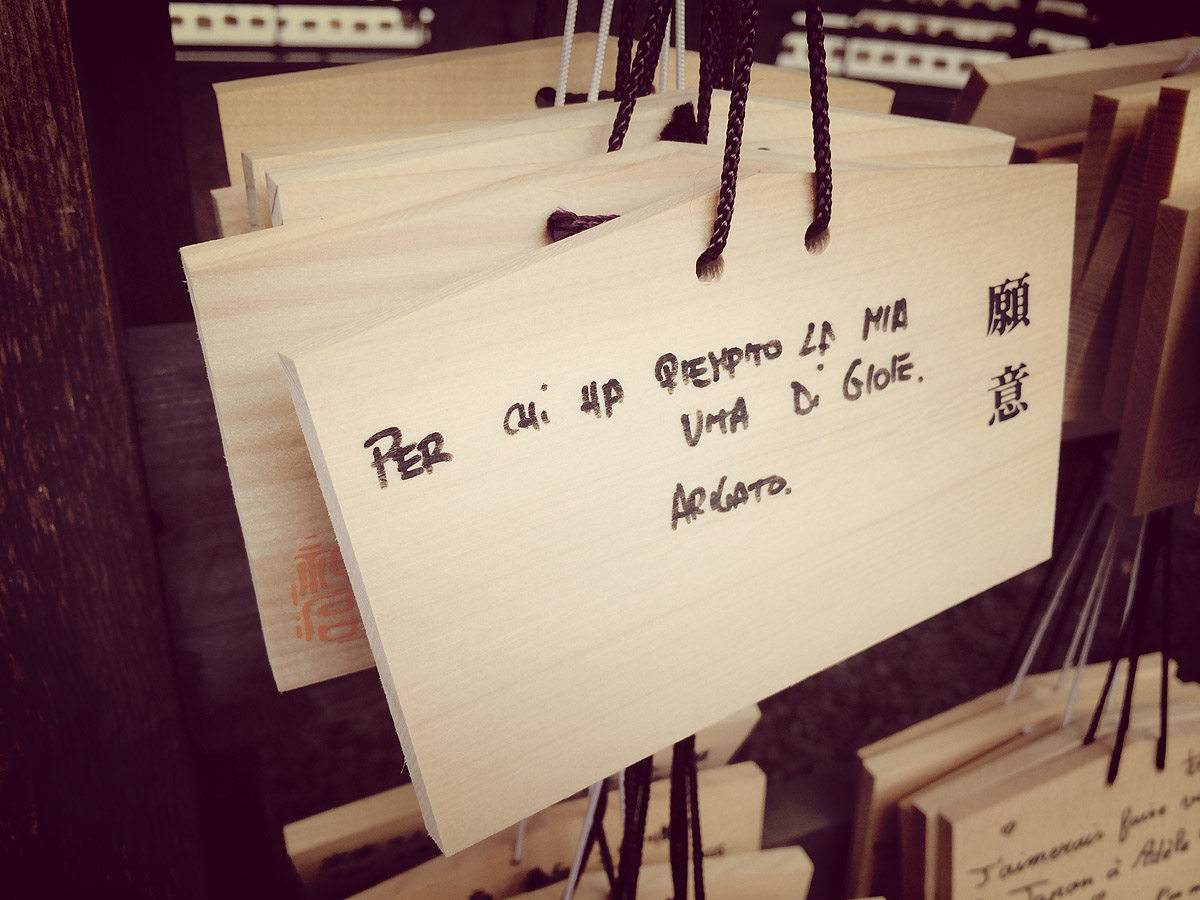 PER CHi HA RIEMPITO LA MIA
VITA Di GIOIE.
ARIGATO.
願意
J'aimerais faire
Japon à Adèle